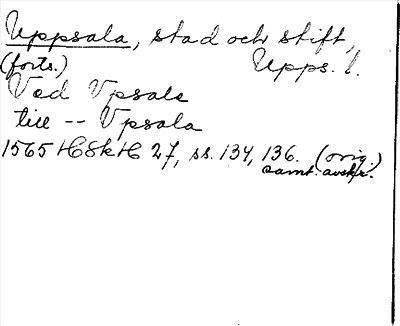 Uppsala, stad och stift,
(forts.) Upps. l.
Vad Vpsale
till -- Vpsala
1565 HSkH 27, ss. 134, 136. (orig.)
samt. avskr.